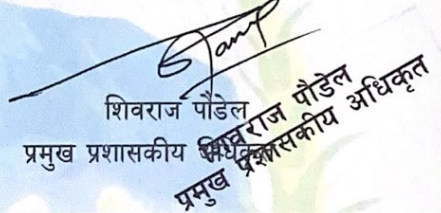 शिवराज पौडेल
प्रमुख प्रशासकीय अधिकृत
शिवराज पौडेल
प्रमुख प्रशासकीय अधिकृत